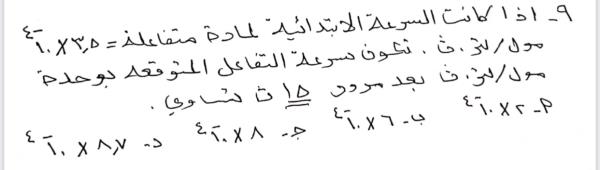 ٩- اذا كانت السرعة الابتدائية لمادة متفاعلة = ٣,٥ × ١٠⁻⁴
مول/لتر.ث . تكون سرعة التفاعل المتوقعه بوحدة
مول/لتر.ث بعد مرور ١٥ ث تساوي .
م- ٢ × ١٠⁻⁴ ب- ٦ × ١٠⁻⁴ ج- ٨ × ١٠⁻⁴ د- ٨,٧ × ١٠⁻⁴